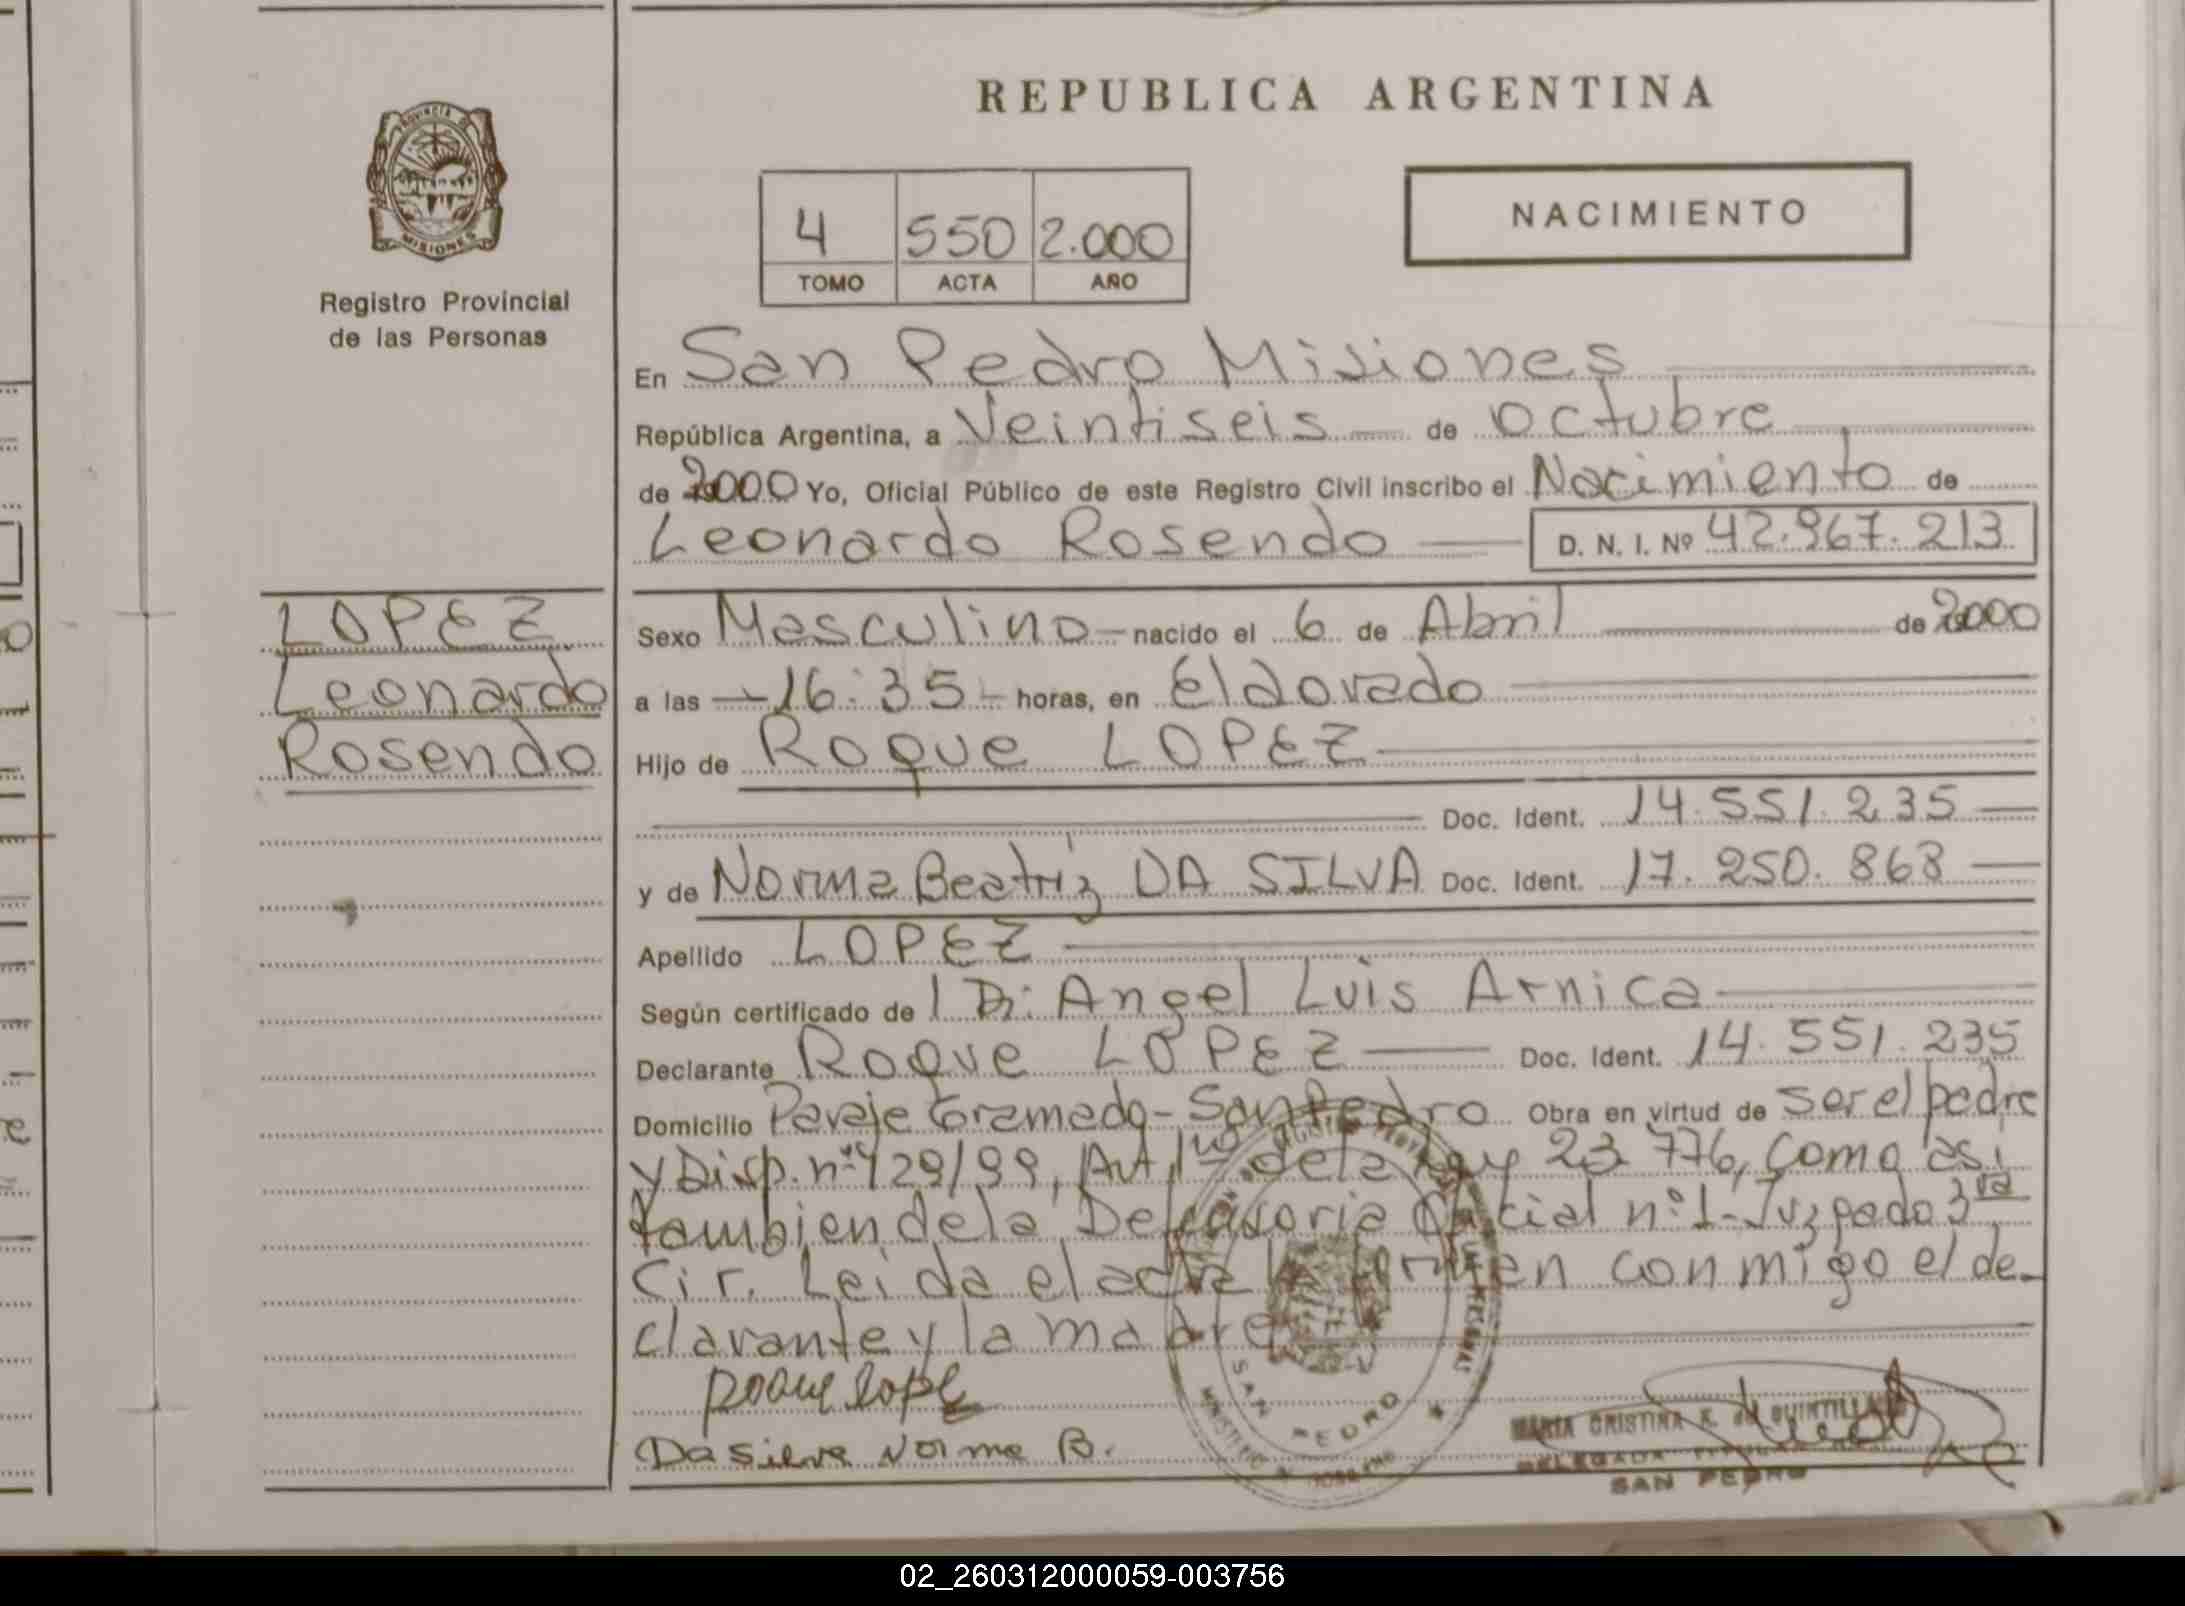 REPUBLICA ARGENTINA
PROVINCIA DE
MISIONES
Registro Provincial
de las Personas
NACIMIENTO
4 550 2.000
TOMO ACTA AÑO
En San Pedro Misiones
República Argentina, a Veintiseis de Octubre
de 2000 Yo, Oficial Público de este Registro Civil inscribo el Nacimiento de
Leonardo Rosendo D. N. I. Nº 42.967.213
LOPEZ
Leonardo
Rosendo
Sexo Masculino nacido el 6 de Abril de 2000
a las 16:35 horas, en Eldorado
Hijo de Roque LOPEZ
Doc. Ident. 14.551.235
y de Norma Beatriz DA SILVA Doc. Ident. 17.250.868
Apellido LOPEZ
Según certificado de Dr. Angel Luis Arnica
Declarante Roque LOPEZ Doc. Ident. 14.551.235
Domicilio Paraje Gramado - San Pedro Obra en virtud de ser el padre
y Disp. nº 429/99, Art. 1º de la Ley 23.776, como asi
tambien de la Defensoria Oficial nº 1 - Juzgado 3ra
Cir. Leida el acta la firmen conmigo el de-
clarante y la madre
Roque Lope
Da Silva Norma B.
SAN PEDRO
MARIA CRISTINA R. de QUINTILLAN
DELEGADA TITULAR
SAN PEDRO
02_260312000059-003756